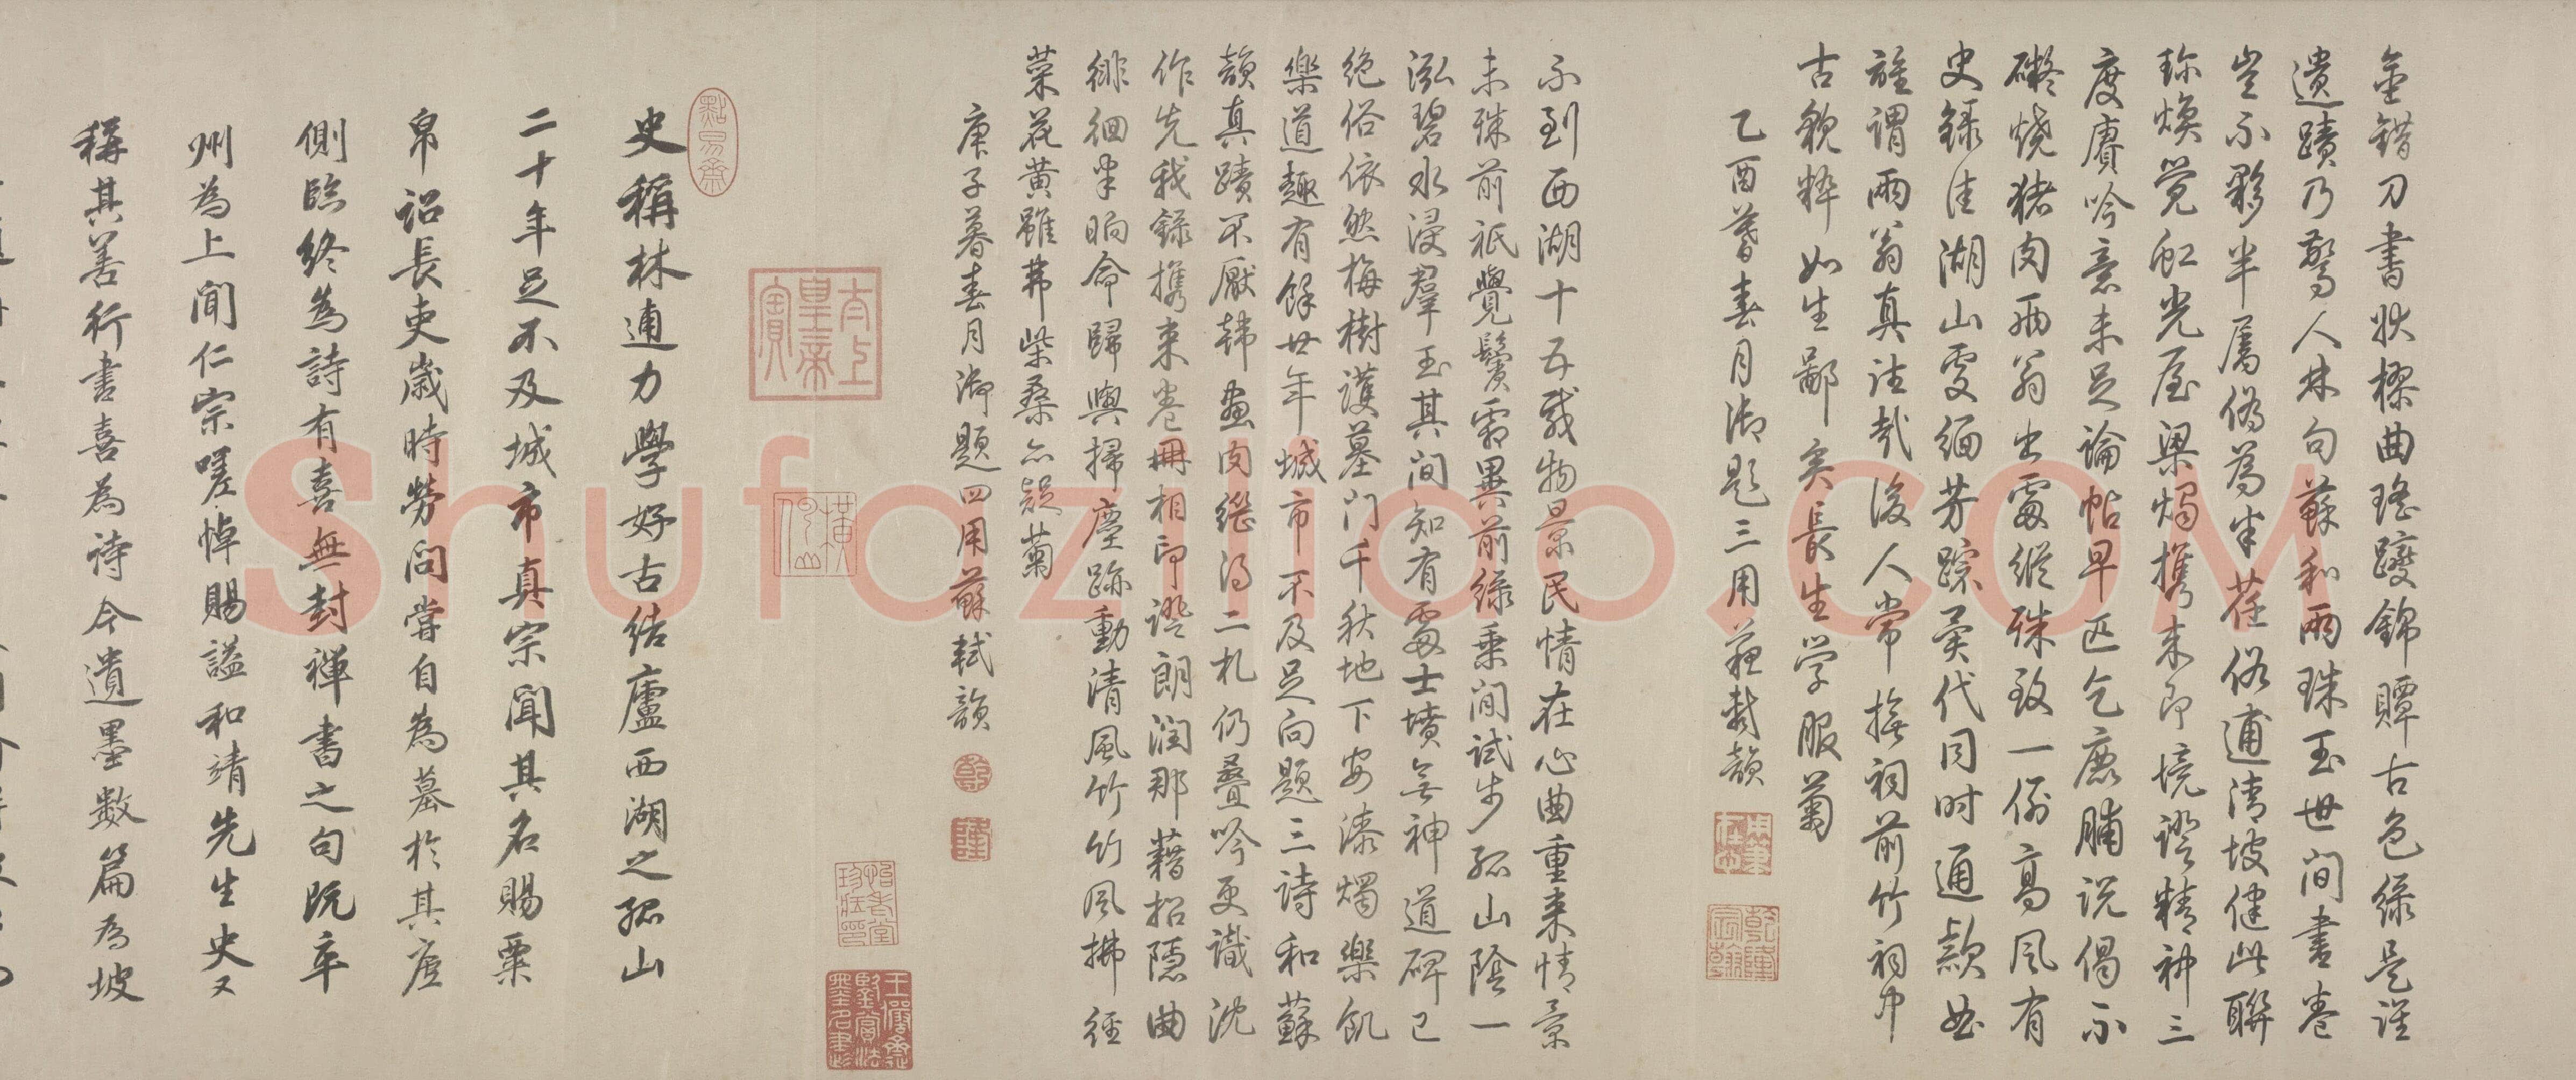 金錯刀書狀樛曲瑤躞錦贉古色綠是誰
遺蹟乃驚人林句蘇和兩珠玉世間書卷
豈不夥半屬偽為半荏俗逋清坡健此聯
珎煥覺虹光屋梁燭攜来即境證精神三
度賡吟意未足論帖早匹乞麄脯說偈不
礙燒猪肉兩翁出處縱殊致一例高風有
史録佳湖山處緬芳蹤異代同时通款曲
誰謂兩翁真往哉後人常撫祠前竹祠中
古貌粹如生鄙矣長生学服菊
乙酉暮春月御題三用蘇軾韻
不到西湖十五載物景民情在心曲重来情景
未殊前祇覺鬢霜異前綠乗閒試步孤山陰一
泓碧水浸羣玉其間知有處士墳無神道碑已
絶俗依然梅樹護墓門千秋地下安漆燭樂飢
樂道趣有餘廿年城市不及足向題三詩和蘇
韻真蹟不厭韩畫肉繼得二札仍叠吟更識沈
作先我録攜来卷冊相印證朗潤那藉招隱曲
徘徊半晌命歸輿掃塵跡動清風竹竹風拂徑
菜花黄雖弗柴桑亦疑菊
庚子暮春月御題四用蘇軾韻
乾
隆
太上皇帝之寶
史稱林逋力學好古結廬西湖之孤山
二十年足不及城市真宗聞其名賜粟
帛詔長吏歲時勞問嘗自為墓於其廬
側臨終為詩有喜無封禪書之句既卒
州為上聞仁宗嗟悼賜謚和靖先生史又
稱其善行書喜為詩今遺墨数篇為坡
shufazidiao.com